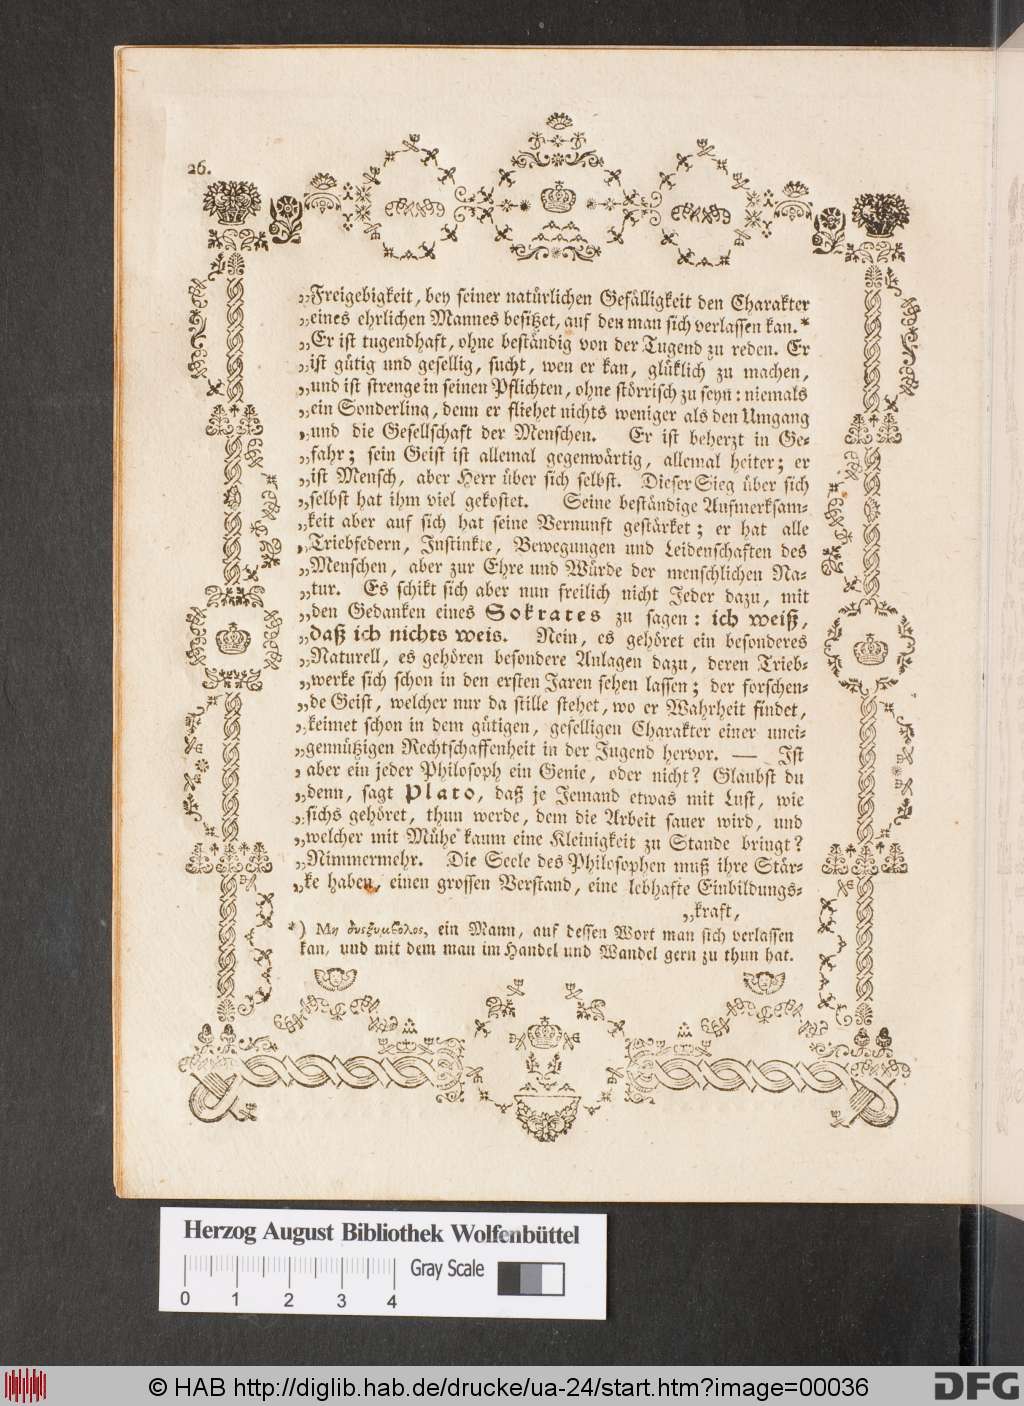 26.
„Freigebigkeit, bey seiner natürlichen Gefälligkeit den Charakter
„eines ehrlichen Mannes besitzet, auf den man sich verlassen kan.*
„Er ist tugendhaft, ohne beständig von der Tugend zu reden. Er
„ist gütig und gesellig, sucht, wen er kan, glüklich zu machen,
„und ist strenge in seinen Pflichten, ohne störrisch zu seyn: niemals
„ein Sonderling, denn er fliehet nichts weniger als den Umgang
„und die Gesellschaft der Menschen. Er ist beherzt in Ge-
„fahr; sein Geist ist allemal gegenwärtig, allemal heiter; er
„ist Mensch, aber Herr über sich selbst. Dieser Sieg über sich
„selbst hat ihm viel gekostet. Seine beständige Aufmerksam-
„keit aber auf sich hat seine Vernunft gestärket; er hat alle
„Triebfedern, Instinkte, Bewegungen und Leidenschaften des
„Menschen, aber zur Ehre und Würde der menschlichen Na-
„tur. Es schikt sich aber nun freilich nicht Jeder dazu, mit
„den Gedanken eines Sokrates zu sagen: ich weiß,
„daß ich nichts weis. Nein, es gehöret ein besonderes
„Naturell, es gehören besondere Anlagen dazu, deren Trieb-
„werke sich schon in den ersten Jaren sehen lassen; der forschen-
„de Geist, welcher nur da stille stehet, wo er Wahrheit findet,
„keimet schon in dem gütigen, geselligen Charakter einer unei-
„gennützigen Rechtschaffenheit in der Jugend hervor. — Ist
„aber ein jeder Philosoph ein Genie, oder nicht? Glaubst du
„denn, sagt Plato, daß je Jemand etwas mit Lust, wie
„sichs gehöret, thun werde, dem die Arbeit sauer wird, und
„welcher mit Mühe kaum eine Kleinigkeit zu Stande bringt?
„Nimmermehr. Die Seele des Philosophen muß ihre Stär-
„ke haben, einen grossen Verstand, eine lebhafte Einbildungs-
„kraft,
*) Μη δυςξυμβολος, ein Mann, auf dessen Wort man sich verlassen
kan, und mit dem man im Handel und Wandel gern zu thun hat.
Herzog August Bibliothek Wolfenbüttel
Gray Scale
0 1 2 3 4
© HAB http://diglib.hab.de/drucke/ua-24/start.htm?image=00036
DFG